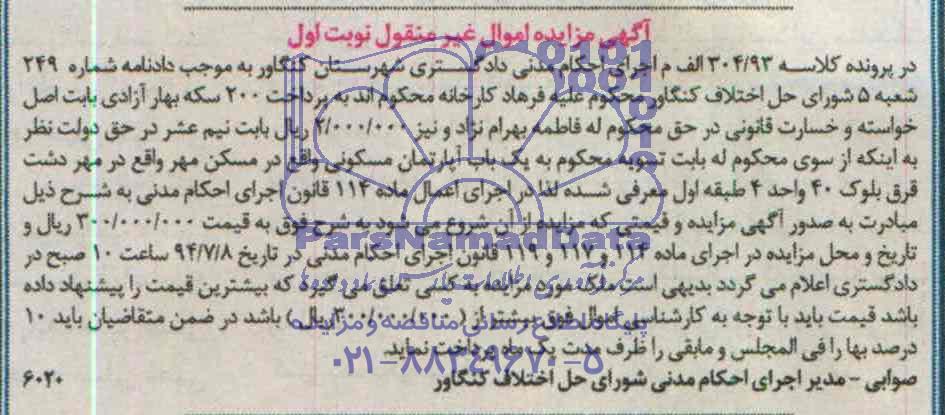 آگهی مزایده اموال غیر منقول نوبت اول
در پرونده کلاسه ۳۰۴/۹۳ الف م اجرای احکام مدنی دادگستری شهرستان کنگاور به موجب دادنامه شماره ۲۴۹
شعبه ۵ شورای حل اختلاف کنگاور محکوم علیه فرهاد کارخانه محکوم اند به پرداخت ۲۰۰ سکه بهار آزادی بابت اصل
خواسته و خسارت قانونی در حق محکوم له فاطمه بهرام نژاد و نیز ۲/۰۰۰/۰۰۰ ریال بابت نیم عشر در حق دولت نظر
به اینکه از سوی محکوم له بابت تسویه محکوم به یک باب آپارتمان مسکونی واقع در مسکن مهر واقع در مهر دشت
قرق بلوک ۴۰ واحد ۴ طبقه اول معرفی شده لذا در اجرای اعمال ماده ۱۱۴ قانون اجرای احکام مدنی به شرح ذیل
مبادرت به صدور آگهی مزایده و قیمتی که مزایده از آن شروع می شود به شرح فوق به قیمت ۳۰۰/۰۰۰/۰۰۰ ریال و
تاریخ و محل مزایده در اجرای ماده ۱۱۴ و ۱۱۷ و ۱۱۹ قانون اجرای احکام مدنی در تاریخ ۹۴/۷/۸ ساعت ۱۰ صبح در
دادگستری اعلام می گردد بدیهی است ملک مورد مزایده به کسی تعلق می گیرد که بیشترین قیمت را پیشنهاد داده
باشد قیمت باید با توجه به کارشناسی اموال فوق بیشتر از (۳۰۰/۰۰۰/۰۰۰ ریال) باشد در ضمن متقاضیان باید ۱۰
درصد بها را فی المجلس و مابقی را ظرف مدت یک ماه پرداخت نماید.
صوابی - مدیر اجرای احکام مدنی شورای حل اختلاف کنگاور
۶۰۲۰
ParsNamadData
پایگاه اطلاع رسانی مناقصه و مزایده
۰۲۱-۸۸۳۴۹۶۷۰-۵